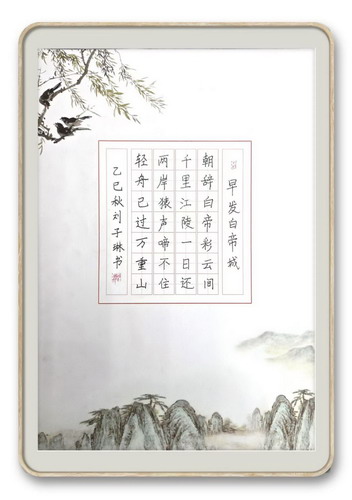 早发白帝城
朝辞白帝彩云间
千里江陵一日还
两岸猿声啼不住
轻舟已过万重山
乙巳秋刘子琳书